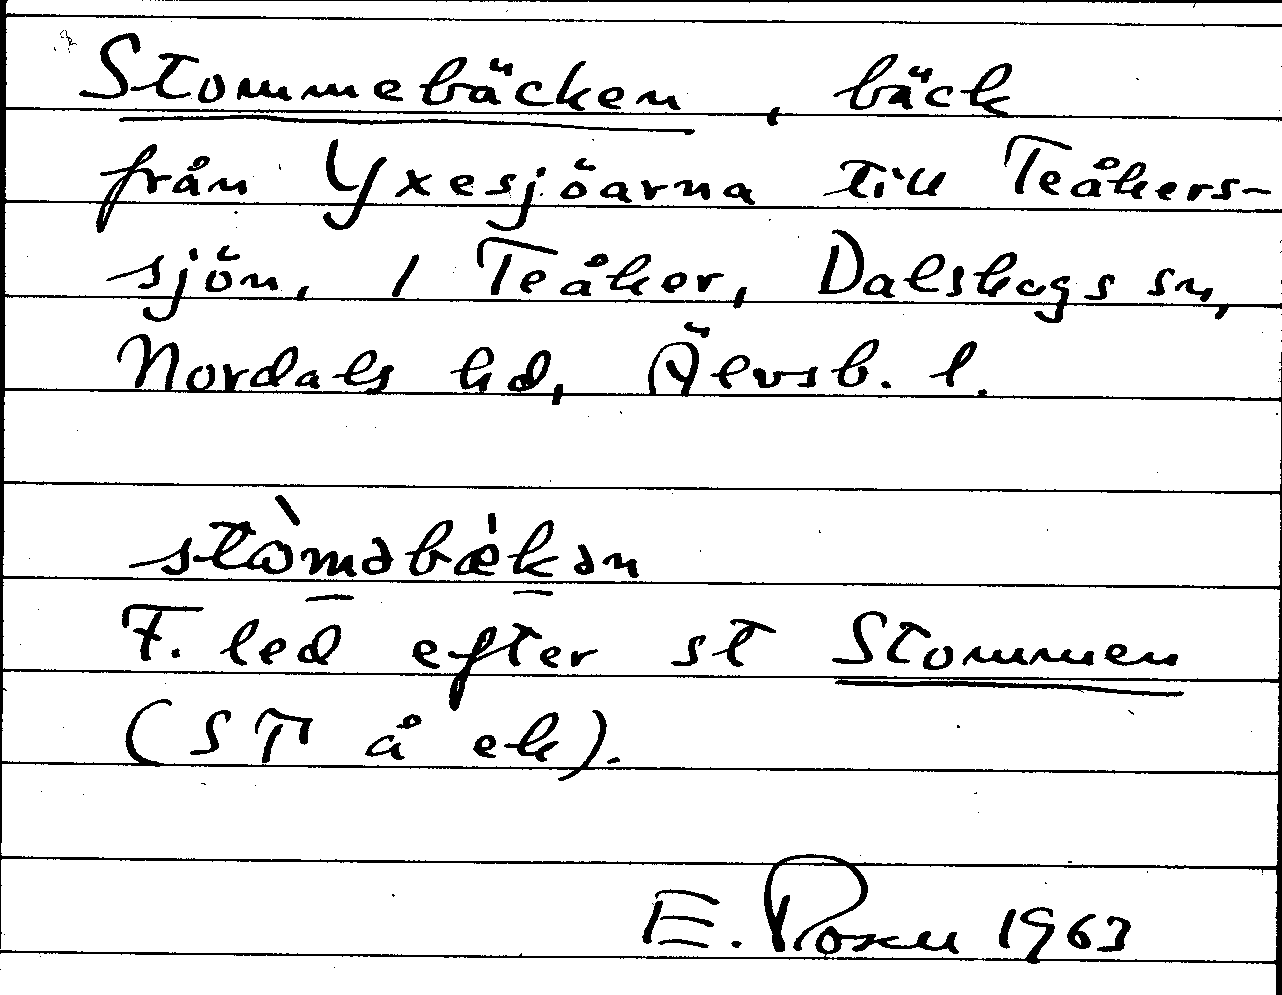 Stommebäcken, bäck
från Yxesjöarna till Teåkers-
sjön, 1 Teåker, Dalskogs sn,
Nordals hd, Älvsb. l.
stò̀məbæ̀kən
F. led efter st Stommen
(ST å ek).
E. Rosen 1963